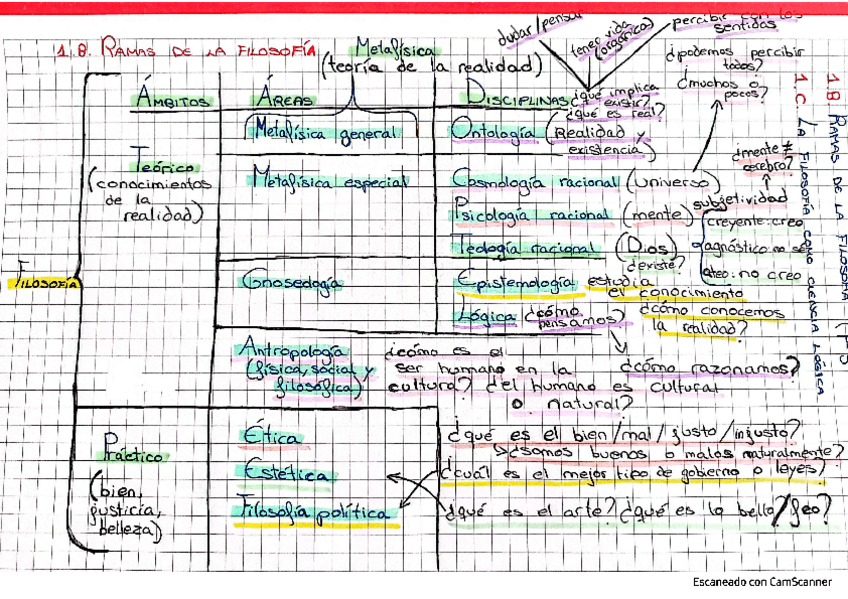 1.B. RAMAS DE LA FILOSOFÍA
Metafísica
(teoría de la realidad)
dudar/pensar
tener vida
(orgánica)
percibir con los
sentidos
¿qué implica
existir?
¿qué es real?
¿podemos percibir
todos?
¿muchos o
pocos?
1.B RAMAS DE LA FILOSOFÍA
1.C. LA FILOSOFÍA COMO CIENCIA LÓGICA
FILOSOFÍA
ÁMBITOS
ÁREAS
DISCIPLINAS
Teórico
(conocimientos
de la
realidad)
Metafísica general
Ontología (Realidad y
existencia)
Metafísica especial
Cosmología racional (universo)
Psicología racional (mente)
Teología racional (Dios)
¿existe?
¿mente ≠
cerebro?
subjetividad
creyente: creo
agnóstico: no sé
ateo: no creo
Gnoseología
Epistemología estudia
el conocimiento
¿cómo conocemos
la realidad?
Lógica ¿cómo
pensamos?
¿cómo razonamos?
Antropología
(física, social y
filosófica)
¿cómo es el
ser humano en la
cultura? ¿el humano es cultural
o natural?
Práctico
(bien,
justicia,
belleza)
Ética
¿qué es el bien/mal/justo/injusto?
¿somos buenos o malos naturalmente?
Estética
¿cuál es el mejor tipo de gobierno o leyes?
Filosofía política
¿qué es el arte? ¿qué es lo bello/feo?
Escaneado con CamScanner